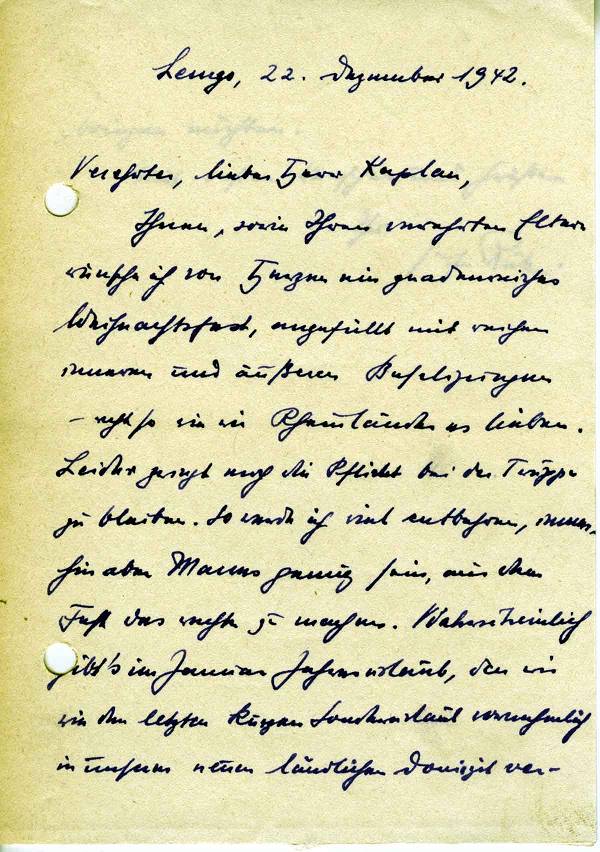 Lemgo, 22. Dezember 1942.
Verehrter, lieber Herr Kaplan,
Ihnen, sowie Ihren verehrten Eltern
wünsche ich von Herzen ein gnadenreiches
Weihnachtsfest, angefüllt mit reichen
inneren und äußeren Beseligungen
– recht so wie wir Rheinländer es lieben.
Leider zwingt mich die Pflicht bei der Truppe
zu bleiben. So werde ich viel entbehren, immer-
hin aber Manns genug sein, aus dem
Fest das rechte zu machen. Wahrscheinlich
gibt's im Januar Jahresurlaub, den wir
wie den letzten kurzen Sonderurlaub vornehmlich
in unserem neuen ländlichen Domizil ver-